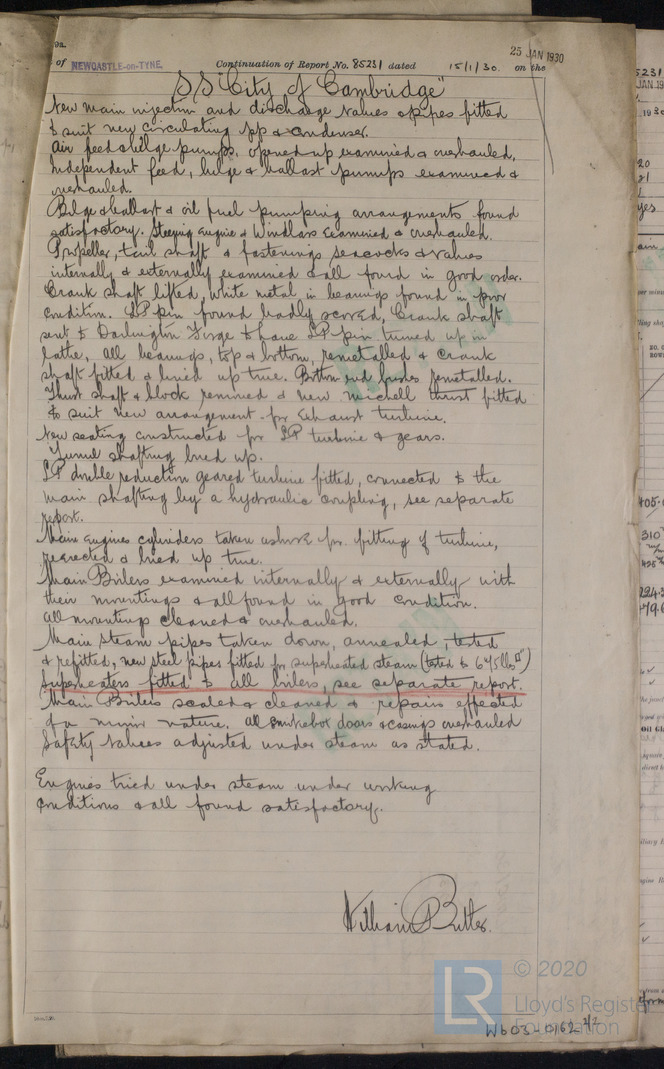 25 JAN 1930
of NEWCASTLE-on-TYNE. Continuation of Report No. 85231 dated 15/1/30. on the
S.S. "City of Cambridge"
New main injection and discharge valves & pipes fitted
to suit new circulating pp & condenser.
Air feed & bilge pumps, opened up examined & overhauled.
Independent feed, bilge & ballast pumps examined &
overhauled.
Bilge & ballast & oil fuel pumping arrangements found
satisfactory. Steering Engine & Windlass Examined & overhauled.
Propeller, tail shaft & fastenings seacocks & valves
internally & externally examined & all found in good order.
Crank shaft lifted, white metal in bearings found in poor
condition. LP pin found badly scored, Crank shaft
sent to Darlington Forge to have LP pin turned up in
lathe, all bearings, top & bottom, remetalled & crank
shaft fitted & lined up true. Bottom end bushes remetalled.
Thrust shaft & block removed & new michell thrust fitted
to suit new arrangement for Exhaust turbine.
New seating constructed for LP turbine & gears.
Tunnel shafting lined up.
LP double reduction geared turbine fitted, connected to the
main shafting by a hydraulic coupling, see separate
report.
Main Engines cylinders taken ashore for fitting of turbine,
reerected & lined up true.
Main Boilers examined internally & externally with
their mountings & all found in good condition.
All mountings cleaned & overhauled.
Main steam pipes taken down, annealed, tested
& refitted, new steel pipes fitted for superheated steam (tested to 675 lbs □")
Superheaters fitted to all boilers, see separate report.
Main Boilers scaled & cleaned & repairs effected
of a minor nature. All smokebox doors & casings overhauled
Safety valves adjusted under steam as stated.
Engines tried under steam under working
conditions & all found satisfactory.
William Butler.
© 2020
Lloyd's Register
Foundation
W603-0162 2/2